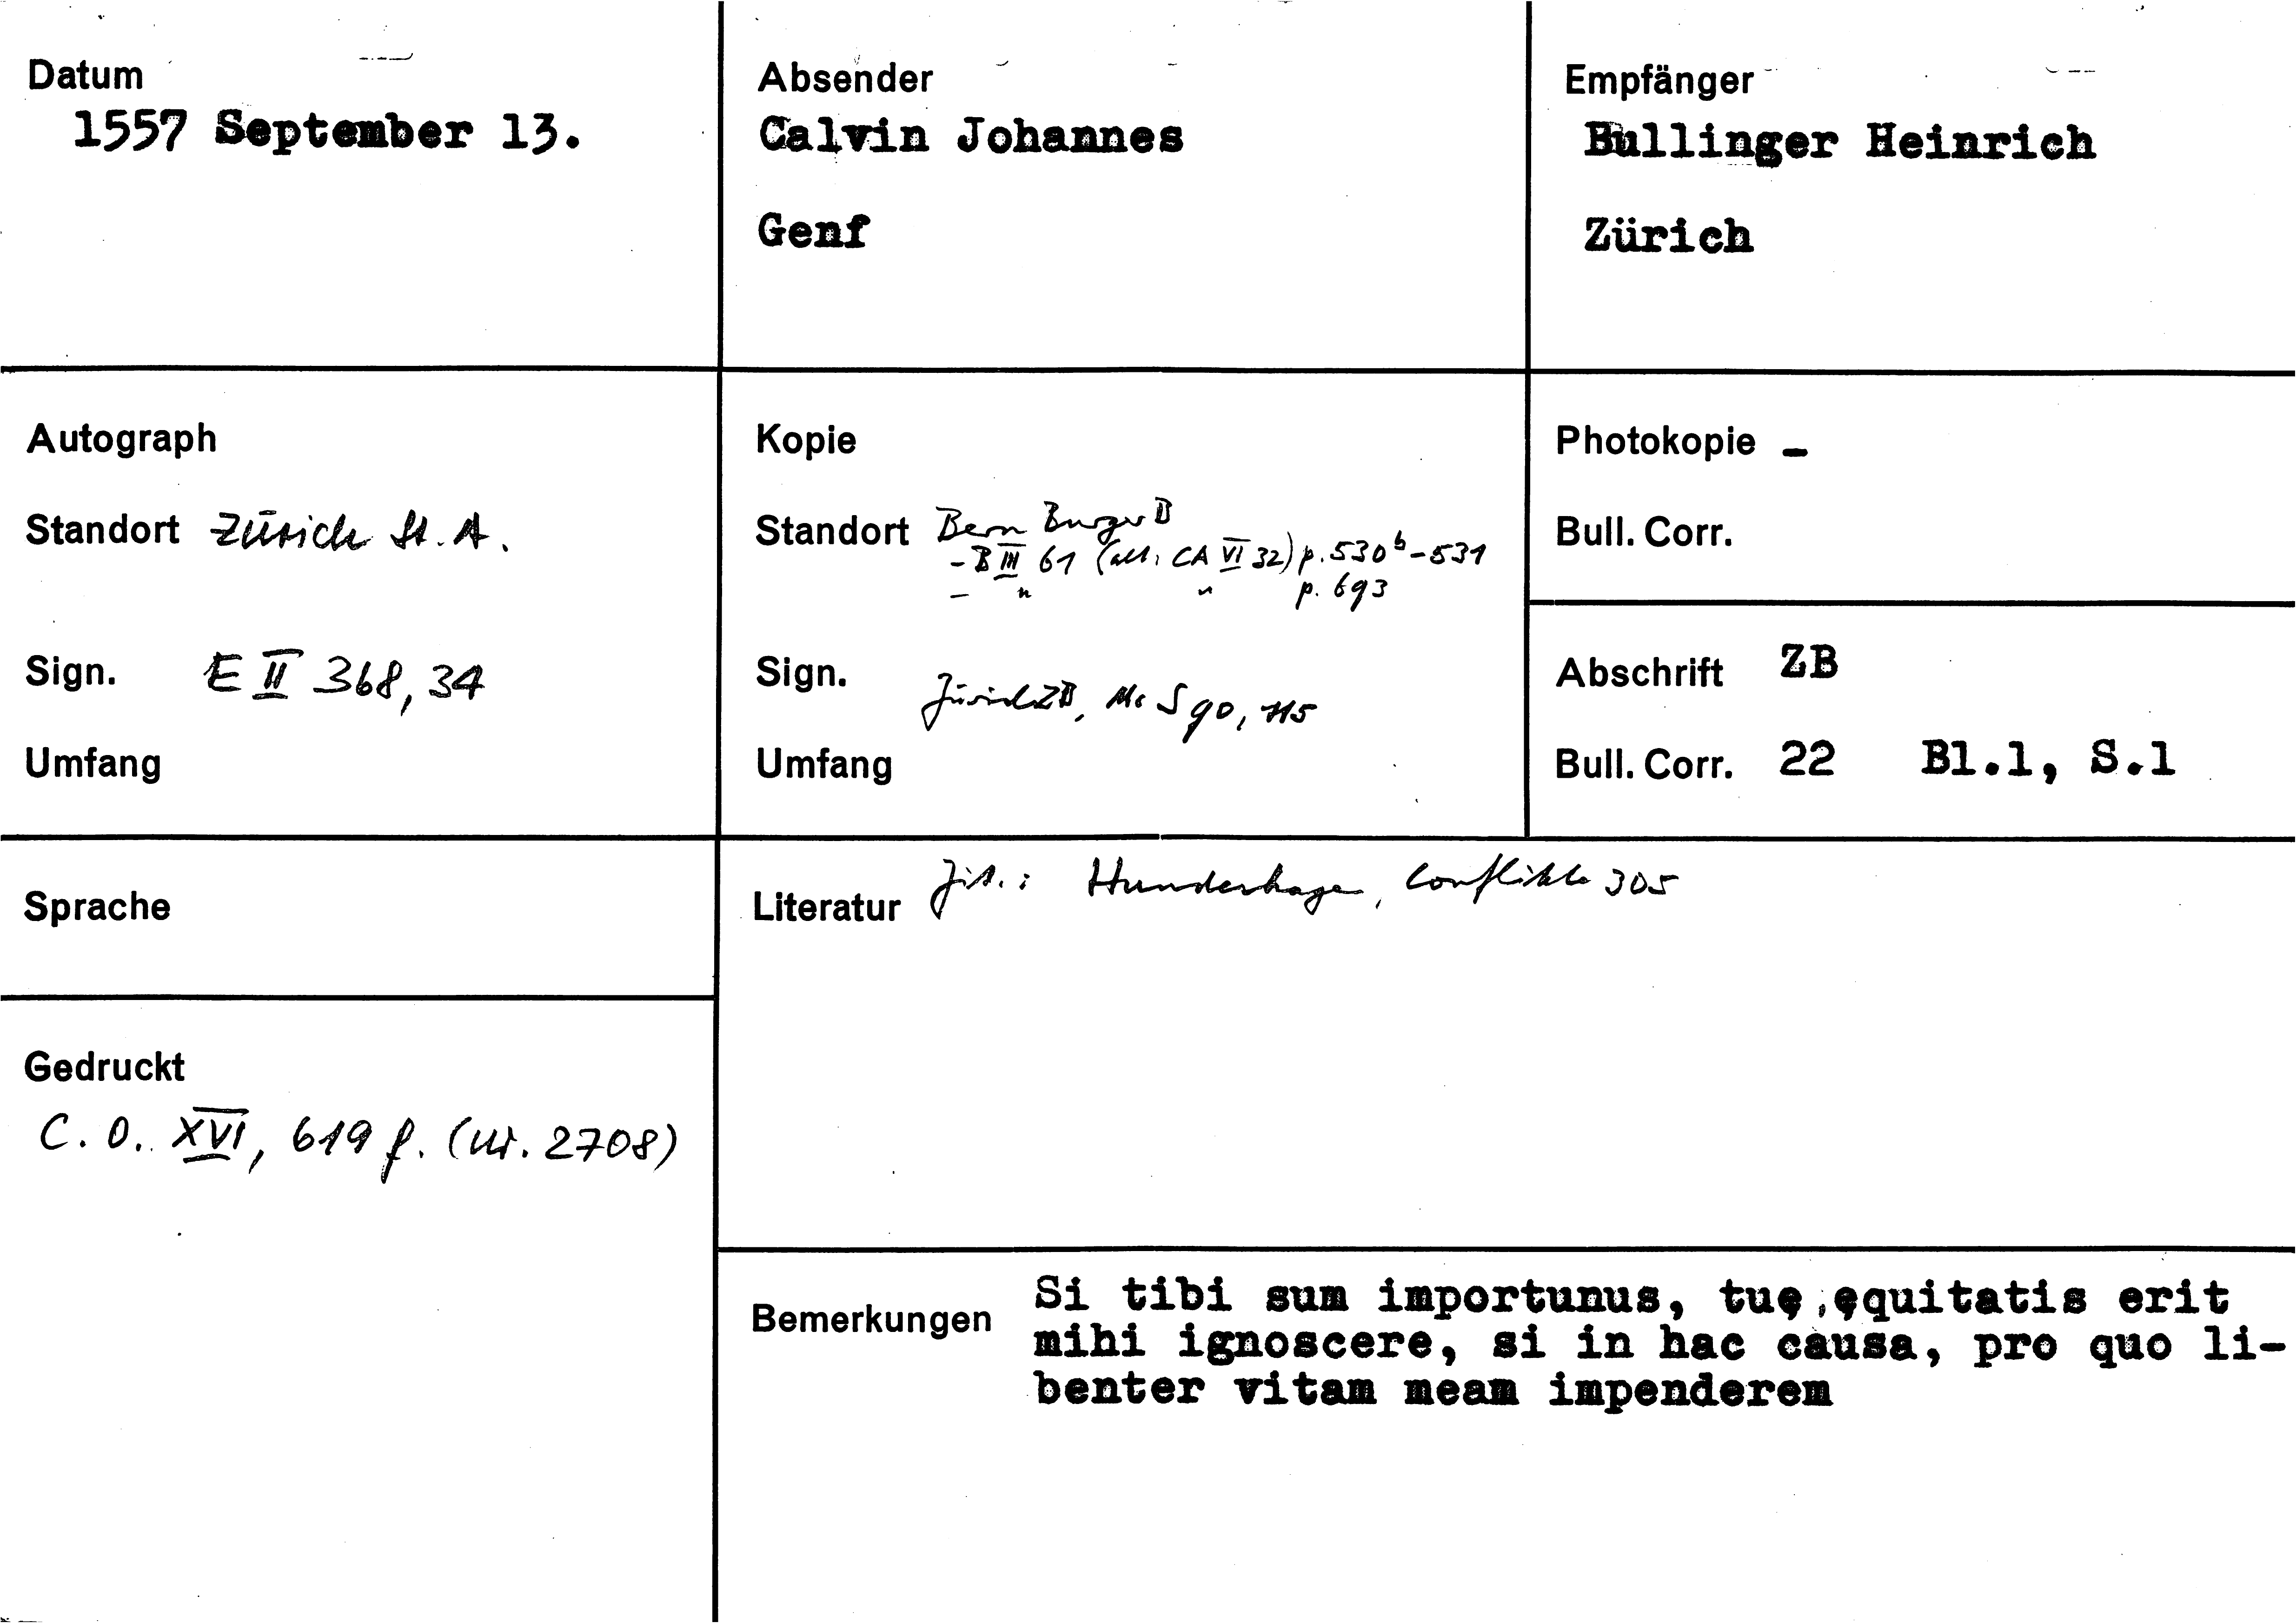 Datum
1557 September 13.
Absender
Calvin Johannes
Genf
Empfänger
Bullinger Heinrich
Zürich
Autograph
Standort Zürich St. A.
Sign. E II 368, 34
Umfang
Kopie
Standort Bern Burger B
- B III 61 (alt: CA VI 32) p. 530b - 531
- " " p. 693
Sign.
Zürich ZB, Ms S 90, 115
Umfang
Photokopie -
Bull. Corr.
Abschrift ZB
Bull. Corr. 22 Bl.1, S.1
Sprache
Literatur Zit.: Hundeshagen, Conflikte 305
Gedruckt
C. O. XVI, 619 f. (Nr. 2708)
Bemerkungen
Si tibi sum importunus, tuę ęquitatis erit
mihi ignoscere, si in hac causa, pro quo li-
benter vitam meam impenderem